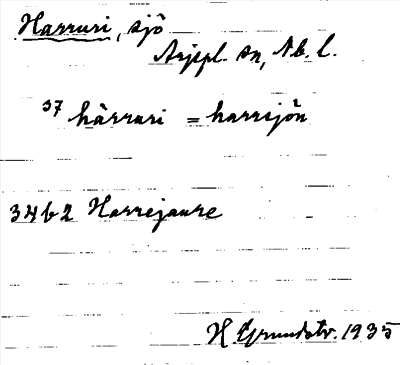 Harruri, sjö
Arjepl. sn, Nb. l.
37 hàrrari = harrsjön
34b2 Harrejaure
H Grundstr. 1935